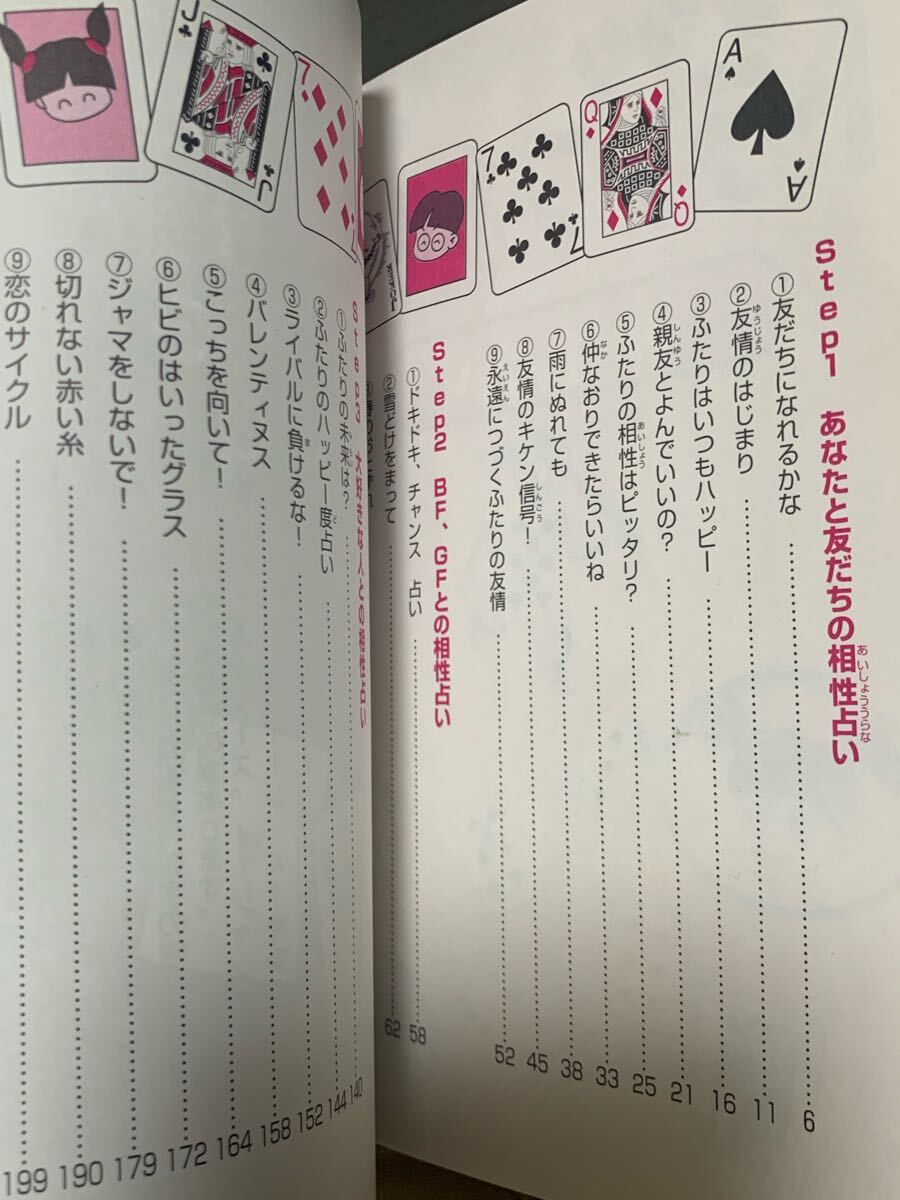 Step1 あなたと友だちの相性占い
①友だちになれるかな……6
②友情のはじまり……11
③ふたりはいつもハッピー……16
④親友とよんでいいの?……21
⑤ふたりの相性はピッタリ?……25
⑥仲なおりできたらいいね……33
⑦雨にぬれても……38
⑧友情のキケン信号!……45
⑨永遠につづくふたりの友情……52
Step2 BF、GFとの相性占い
①ドキドキ、チャンス占い……58
②雪どけをまって……62
Step3 大好きな人との相性占い
①ふたりの未来は?……140
②ふたりのハッピー度占い……144
③ライバルに負けるな!……152
④バレンティヌス……158
⑤こっちを向いて!……164
⑥ヒビのはいったグラス……172
⑦ジャマをしないで!……179
⑧切れない赤い糸……190
⑨恋のサイクル……199
A
A
Q
Q
7
7
7
7
J
J